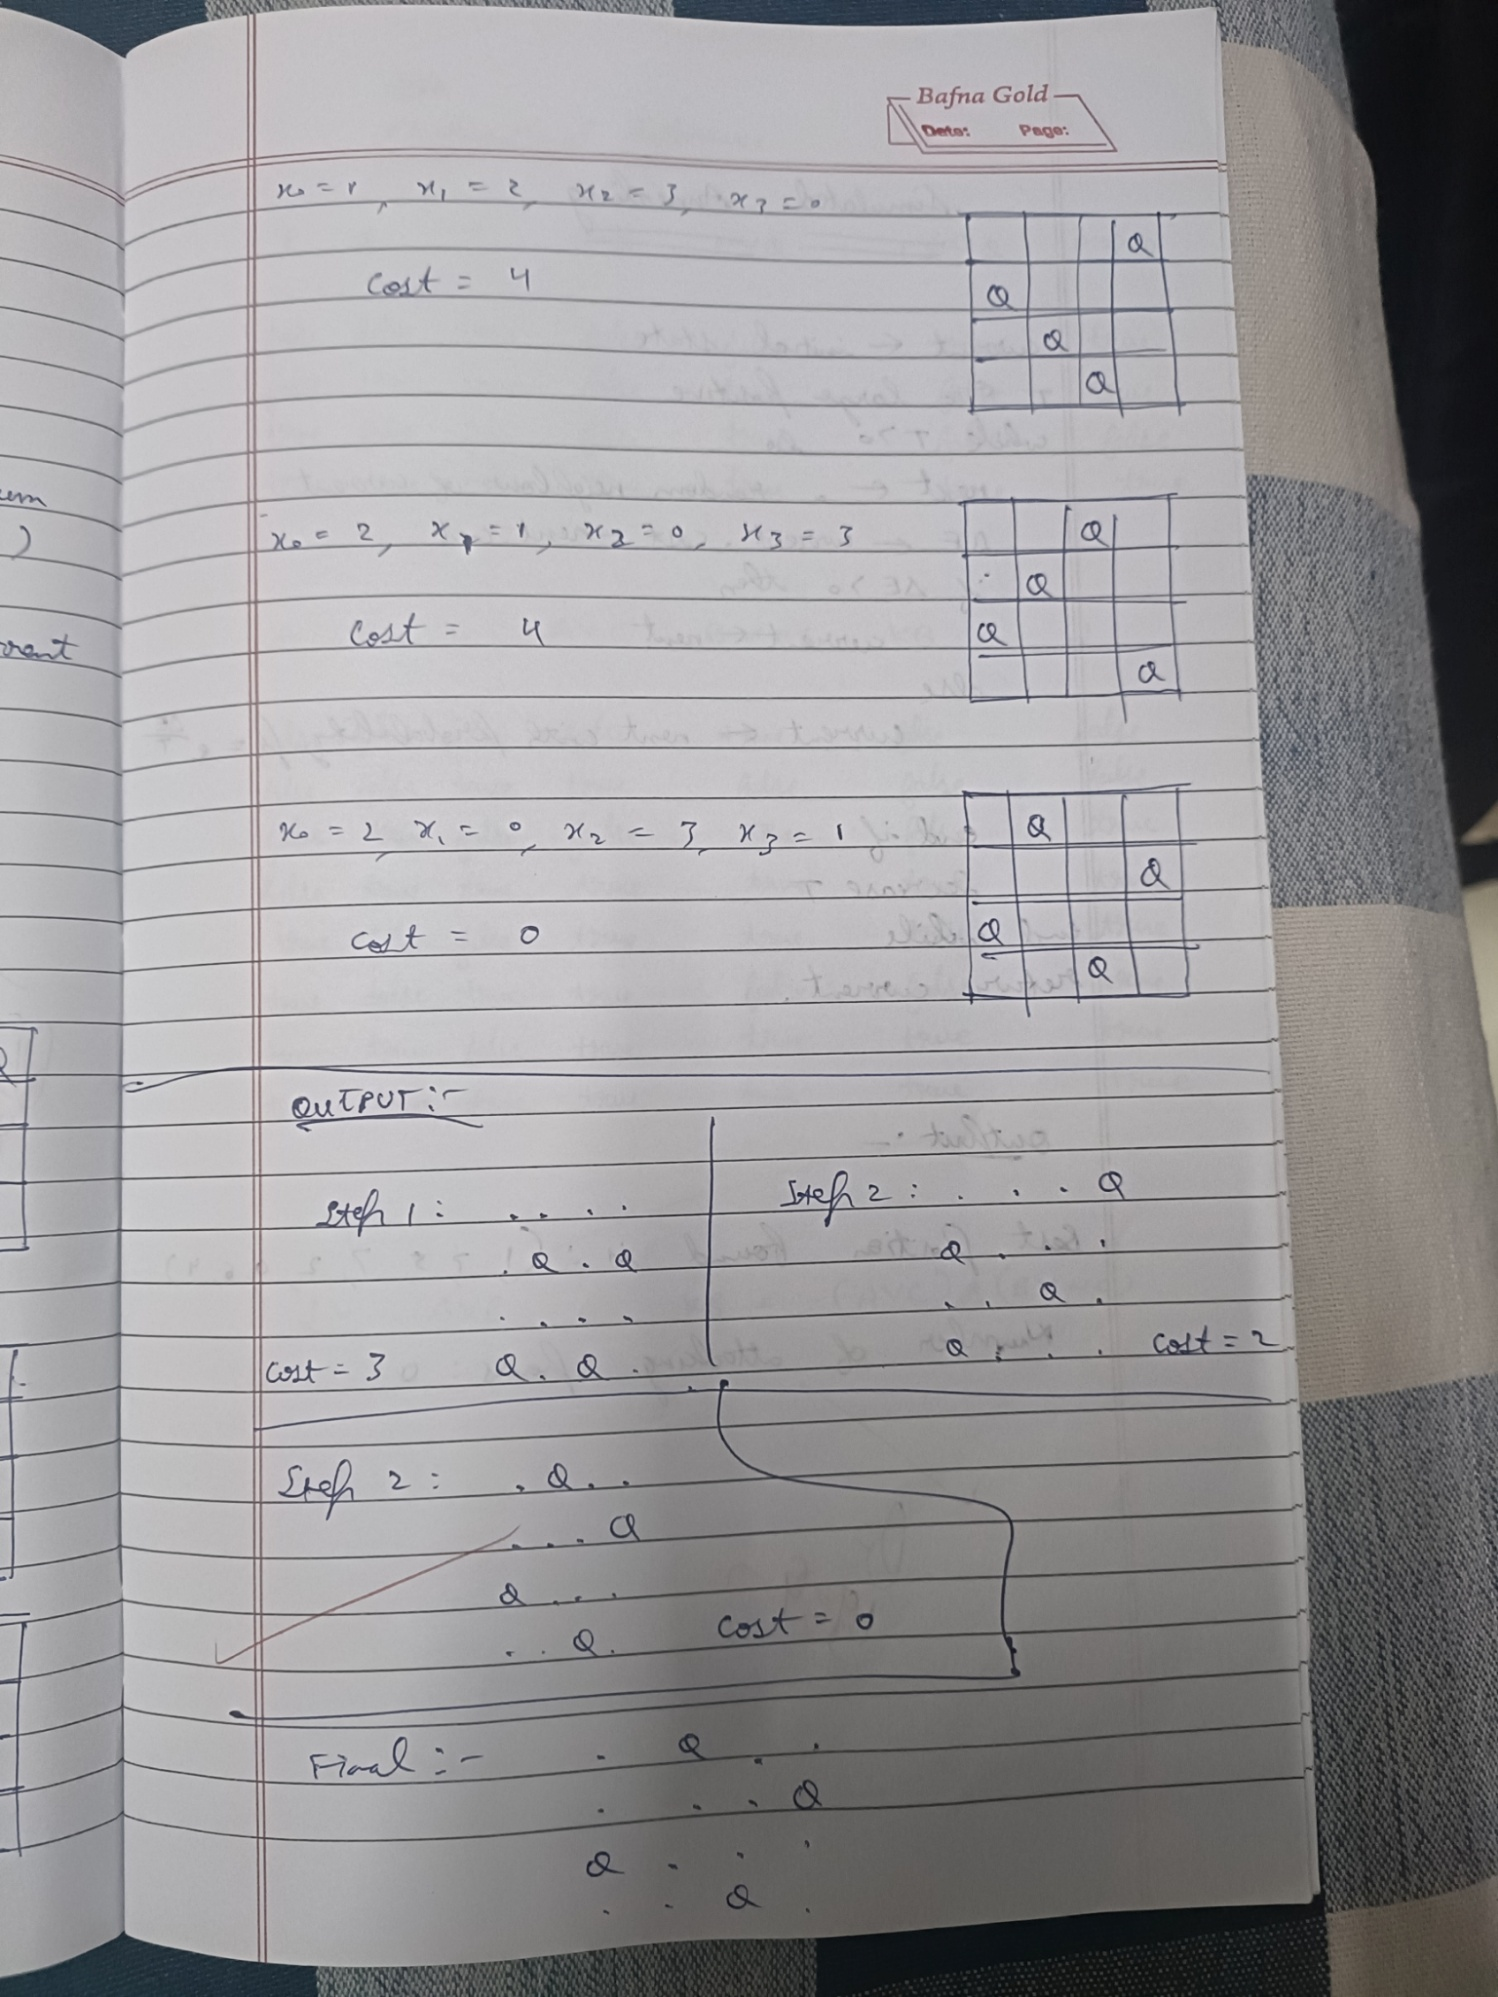 Bafna Gold
Date: Page:
x₀ = 1, x₁ = 2, x₂ = 3, x₃ = 0
Q
Cost = 4
Q
Q
Q
x₀ = 2, x₁ = 1, x₂ = 0, x₃ = 3
Q
Q
Cost = 4
Q
Q
x₀ = 2, x₁ = 0, x₂ = 3, x₃ = 1
Q
Q
Cost = 0
Q
Q
OUTPUT :-
Step 1 : . . . .
. Q . Q
. . . .
Cost = 3 Q . Q .
Step 2 : . . . Q
Q . . .
. . Q .
Q . . . Cost = 2
Step 2 : . Q . .
. . . Q
Q . . .
. . Q . Cost = 0
Final :- . Q . .
. . . Q
Q . . .
. . Q .
um
)
rent